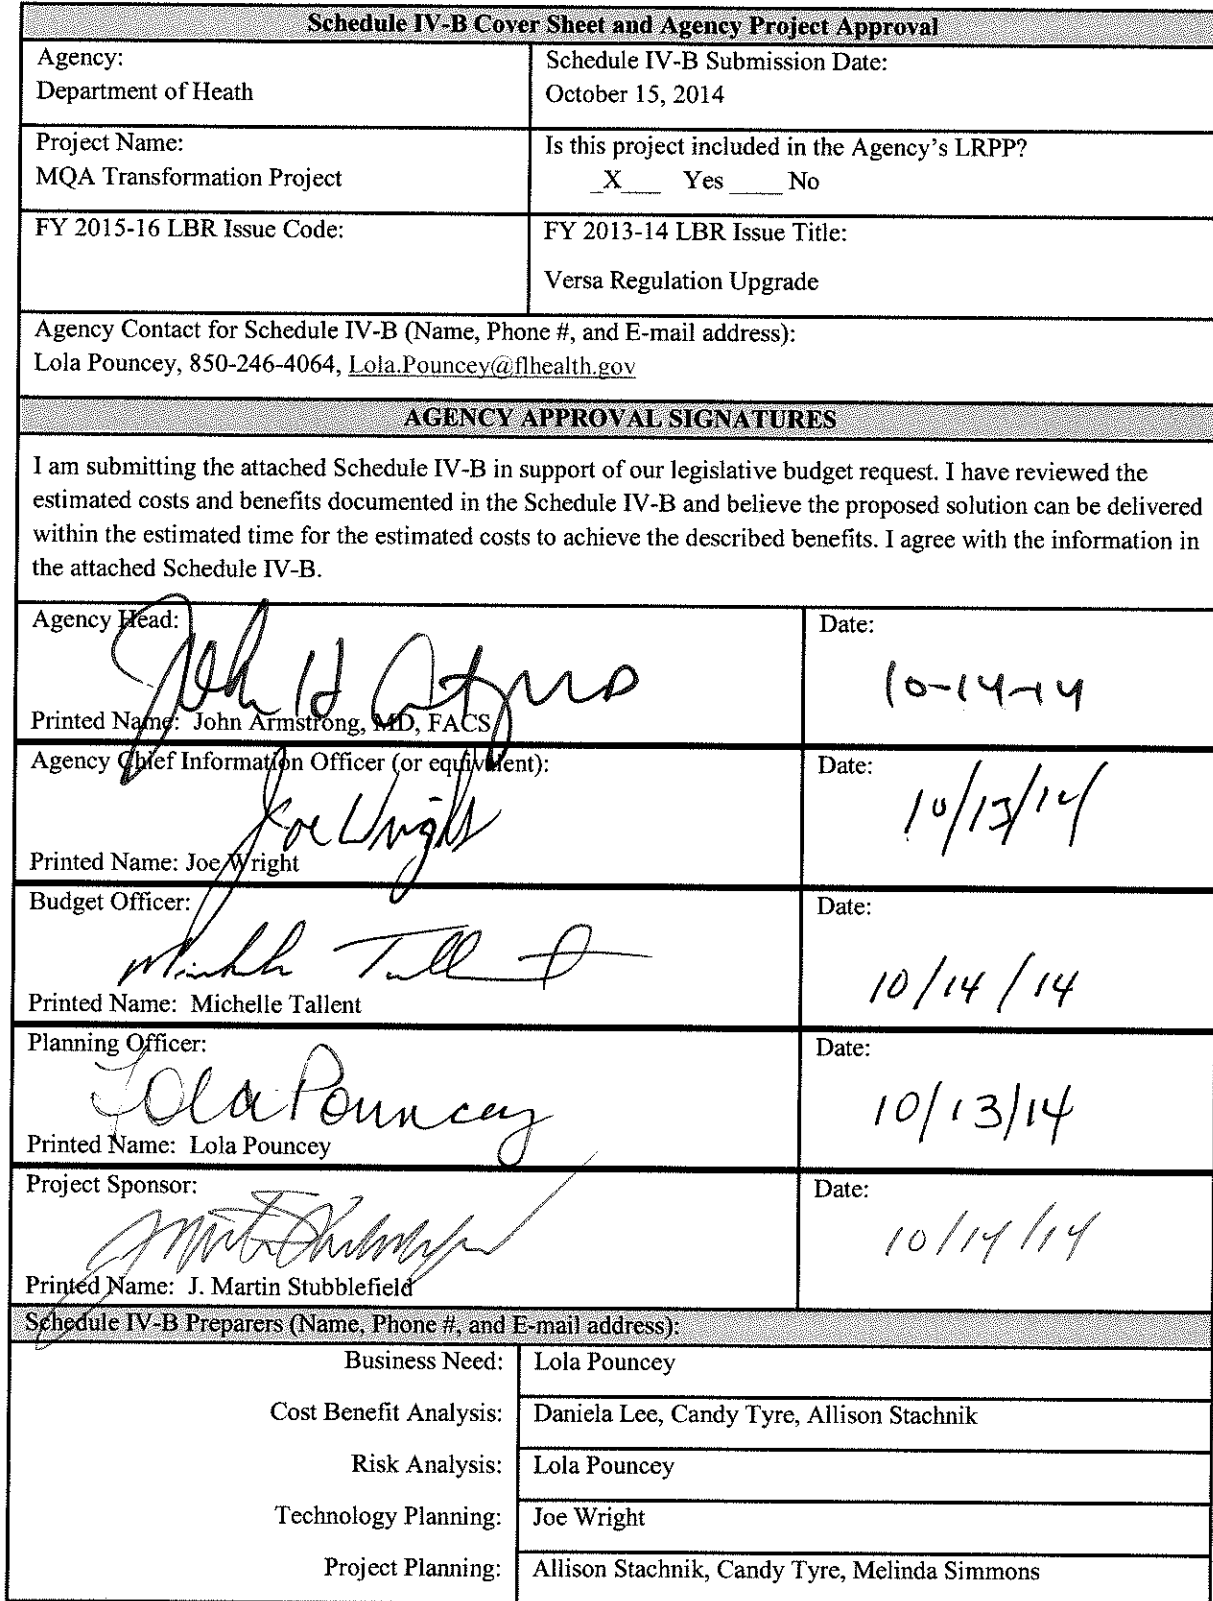 Schedule IV-B Cover Sheet and Agency Project Approval
Agency:
Department of Heath
Schedule IV-B Submission Date:
October 15, 2014
Project Name:
MQA Transformation Project
Is this project included in the Agency's LRPP?
_X___ Yes ____ No
FY 2015-16 LBR Issue Code:
FY 2013-14 LBR Issue Title:
Versa Regulation Upgrade
Agency Contact for Schedule IV-B (Name, Phone #, and E-mail address):
Lola Pouncey, 850-246-4064, Lola.Pouncey@flhealth.gov
AGENCY APPROVAL SIGNATURES
I am submitting the attached Schedule IV-B in support of our legislative budget request. I have reviewed the
estimated costs and benefits documented in the Schedule IV-B and believe the proposed solution can be delivered
within the estimated time for the estimated costs to achieve the described benefits. I agree with the information in
the attached Schedule IV-B.
Agency Head:
John H
MD
Printed Name: John Armstrong, MD, FACS
Date:
10-14-14
Agency Chief Information Officer (or equivalent):
Joe Wright
Printed Name: Joe Wright
Date:
10/13/14
Budget Officer:
Printed Name: Michelle Tallent
Date:
10/14/14
Planning Officer:
Lola Pouncey
Printed Name: Lola Pouncey
Date:
10/13/14
Project Sponsor:
Printed Name: J. Martin Stubblefield
Date:
10/14/14
Schedule IV-B Preparers (Name, Phone #, and E-mail address):
Business Need: Lola Pouncey
Cost Benefit Analysis: Daniela Lee, Candy Tyre, Allison Stachnik
Risk Analysis: Lola Pouncey
Technology Planning: Joe Wright
Project Planning: Allison Stachnik, Candy Tyre, Melinda Simmons